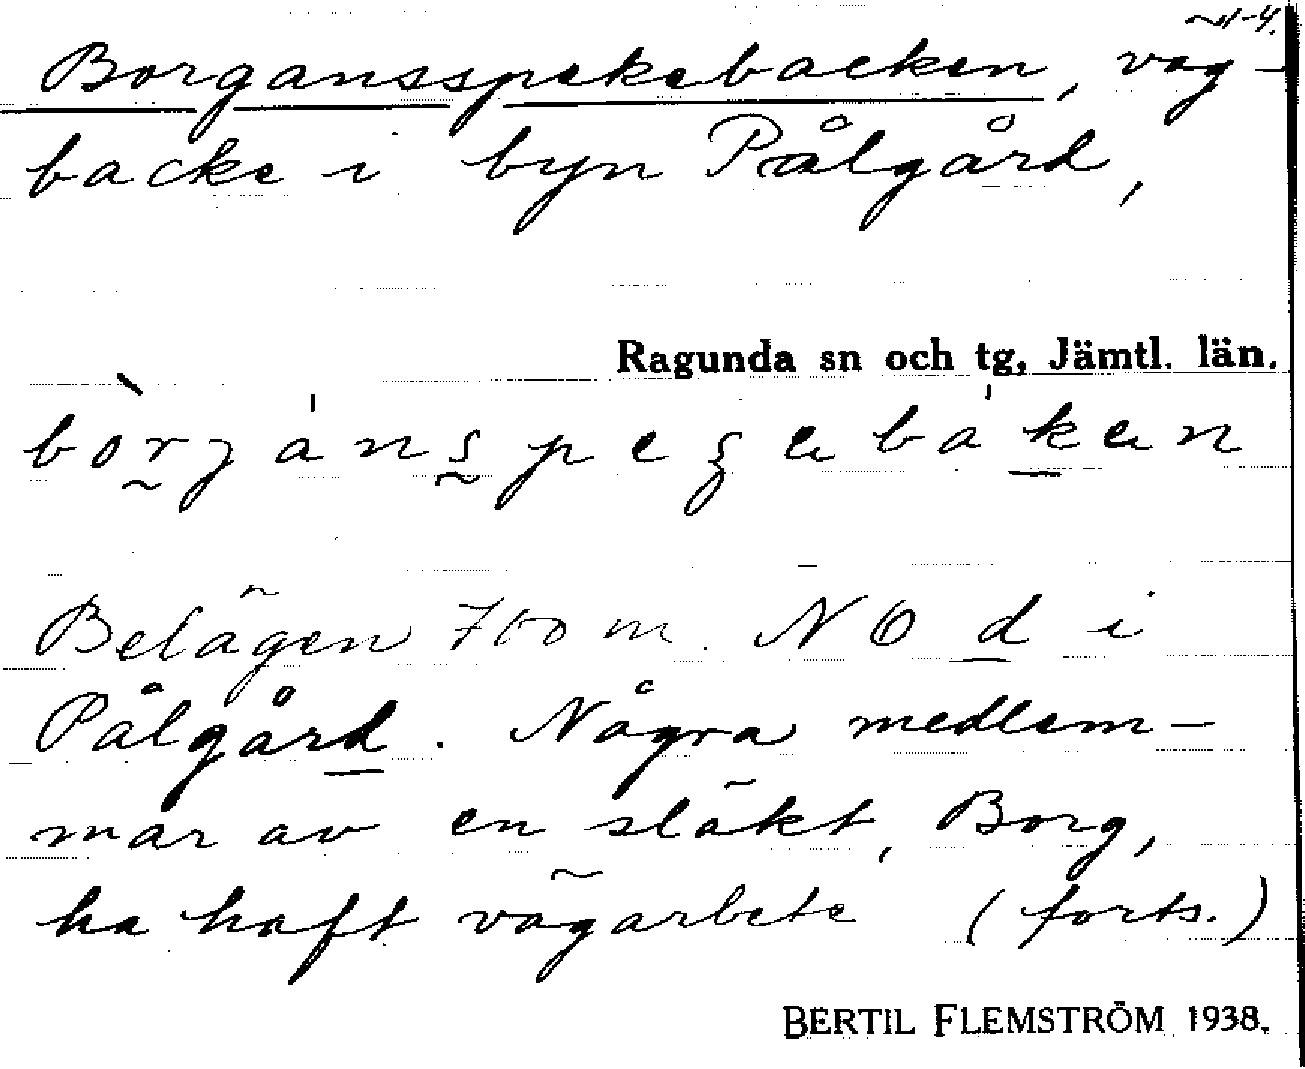 Borgansspekebacken, väg-
backe i byn Pålgård,
Ragunda sn och tg, Jämtl. län.
Belägen 700 m NO d i
Pålgård. Några medlem-
mar av en släkt, Borg,
ha haft vägarbete (forts.)
BERTIL FLEMSTRÖM 1938.